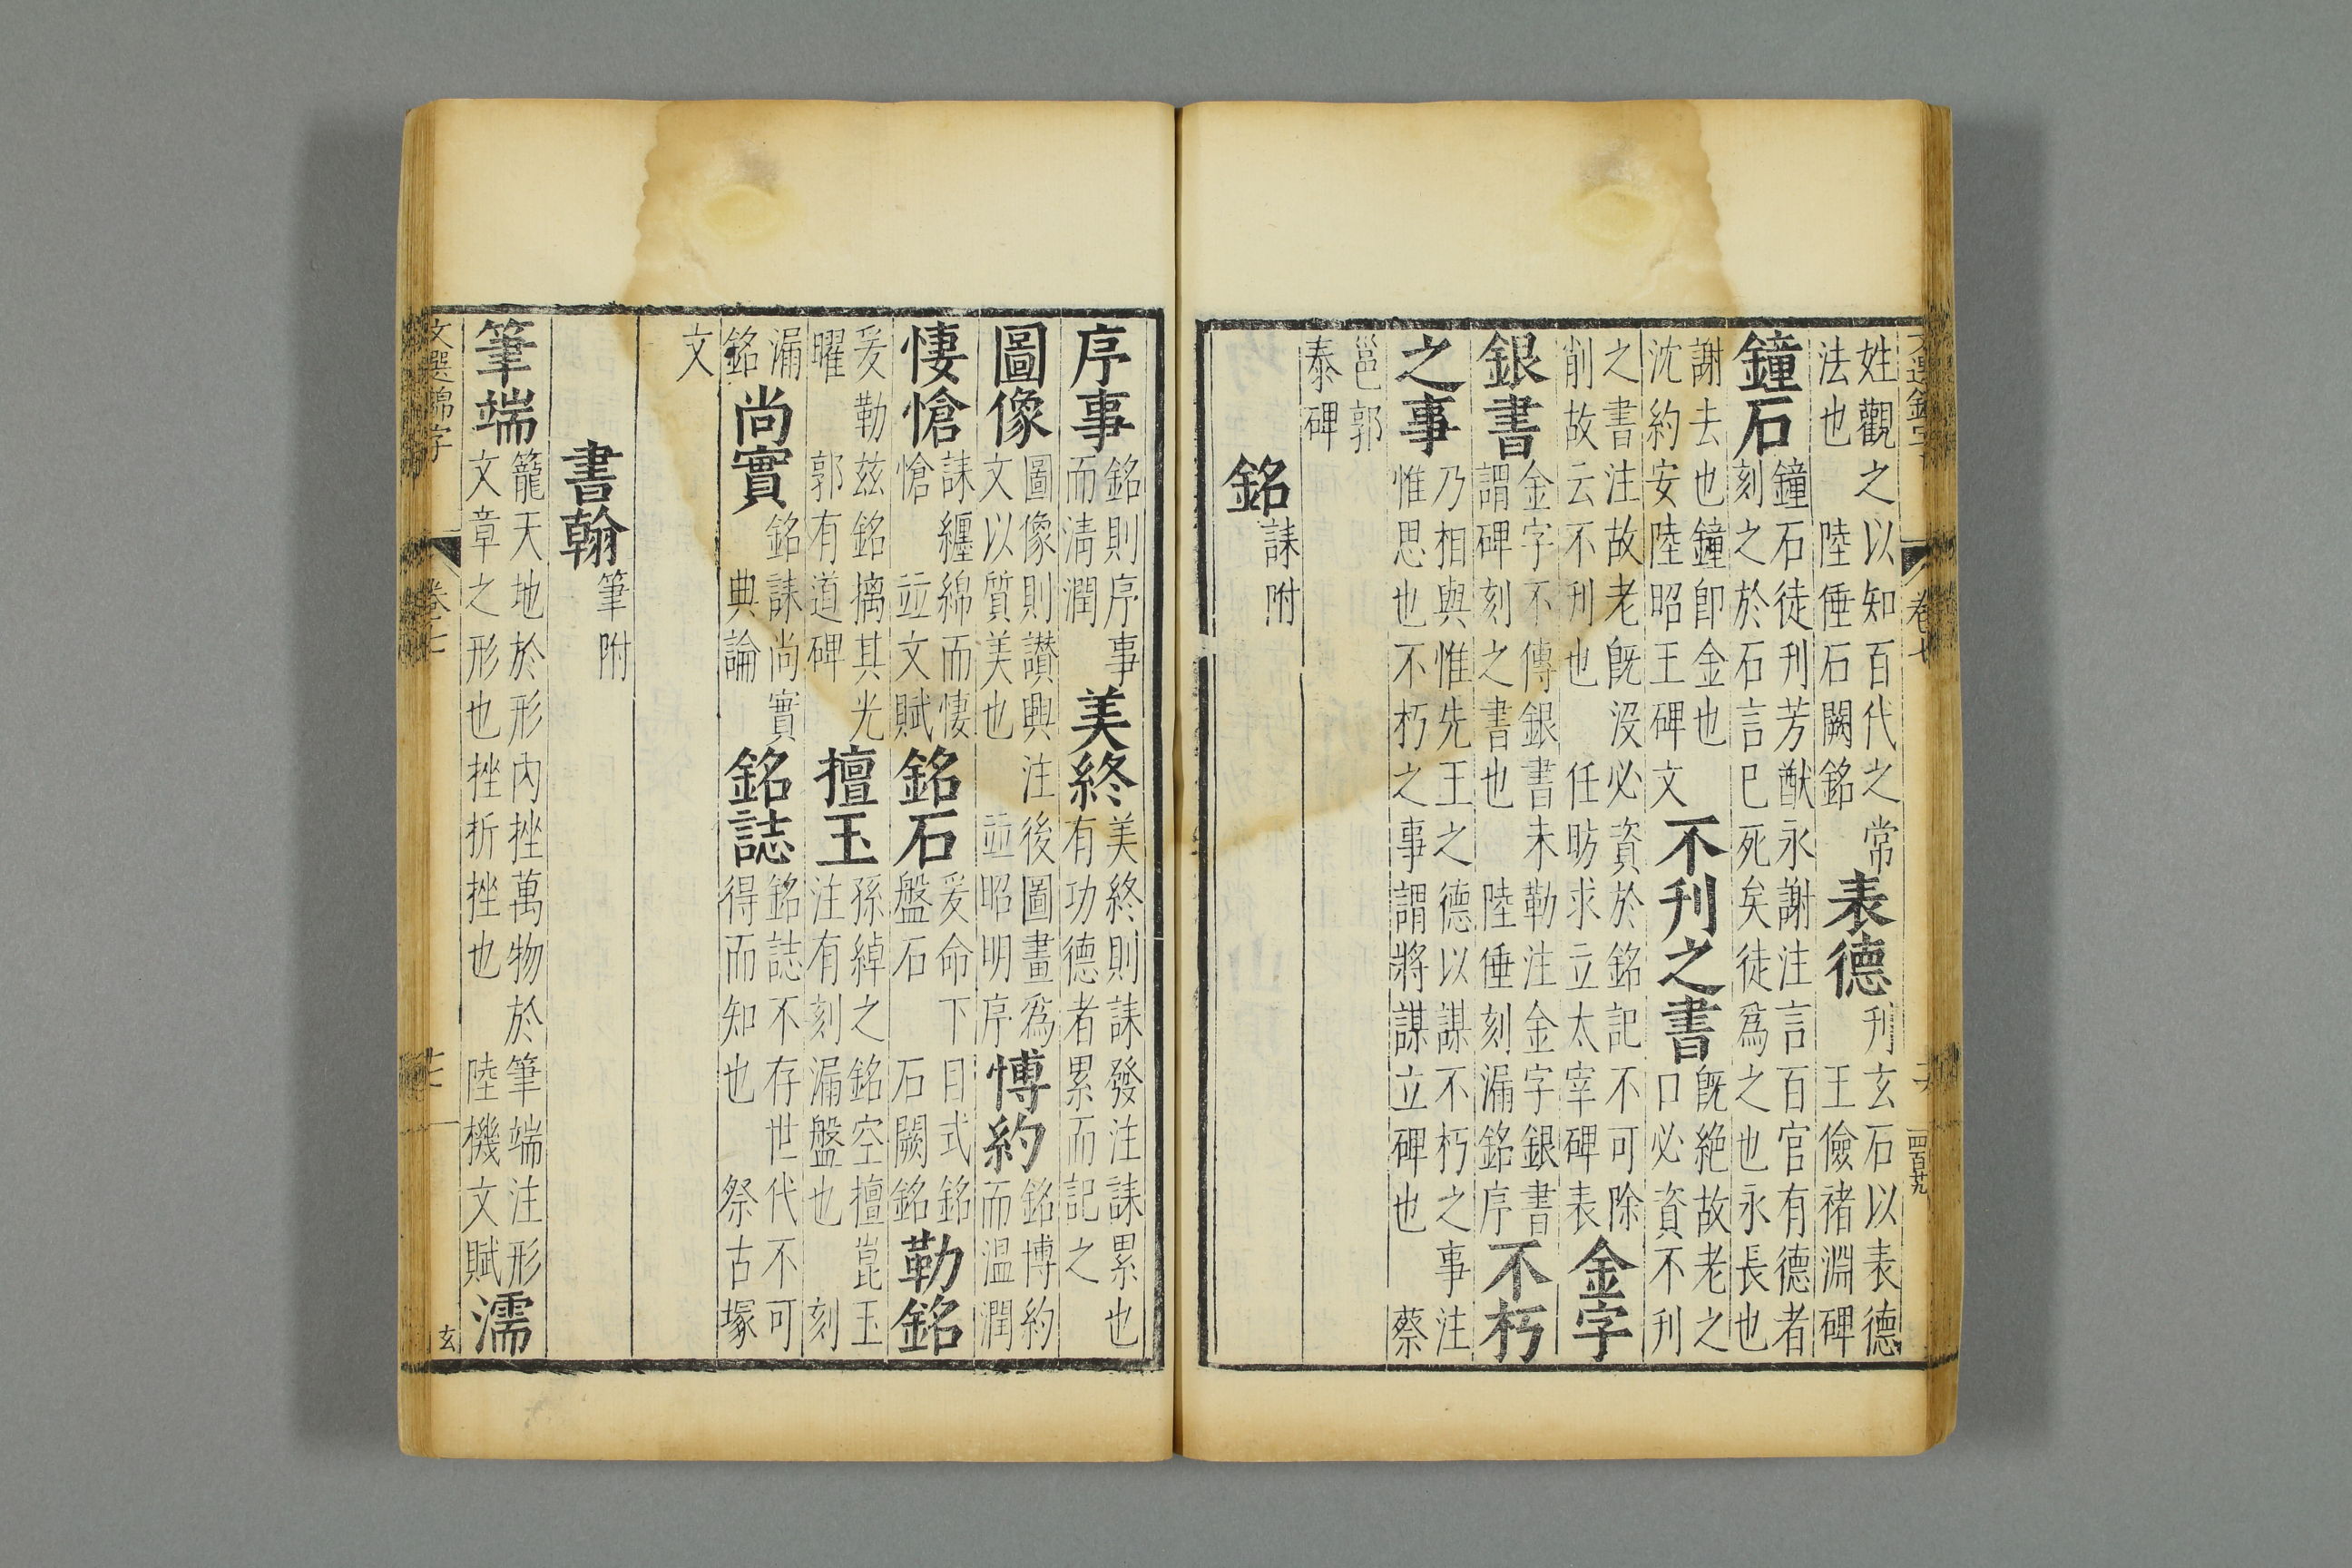 文選錦字 卷七 十六 四百廿九
姓觀之以知百代之常
法也 陸倕石闕銘
表德
刋玄石以表德
王儉褚淵碑
鐘石
鐘石徒刋芳猷永謝注言百官有德者
刻之於石言巳死矣徒爲之也永長也
謝去也鐘卽金也
沈約安陸昭王碑文
不刋之書
旣絶故老之
口必資不刋
之書注故老旣沒必資於銘記不可除
削故云不刋也 任昉求立太宰碑表
金字
銀書
金字不傳銀書未勒注金字銀書
謂碑刻之書也 陸倕刻漏銘序
不朽
之事
乃相與惟先王之德以謀不朽之事注
惟思也不朽之事謂將謀立碑也 蔡
邕郭
泰碑
銘 誄附
序事
銘則序事
而淸潤
美終
美終則誄發注誄累也
有功德者累而記之
圖像
圖像則讃興注後圖畫爲
文以質美也 並昭明序
博約
銘博約
而溫潤
悽愴
誄纏綿而悽
愴 並文賦
銘石
爰命下日式銘
盤石 石闕銘
勒銘
爰勒兹銘摛其光
曜 郭有道碑
擅玉
孫綽之銘空擅崑玉
注有刻漏盤也 刻
漏
銘
尚實
銘誄尚實
典論
銘誌
銘誌不存世代不可
得而知也 祭古塚
文
書翰 筆附
筆端
籠天地於形內挫萬物於筆端注形
文章之形也挫折挫也 陸機文賦
濡
文選錦字 卷七 十七 玄